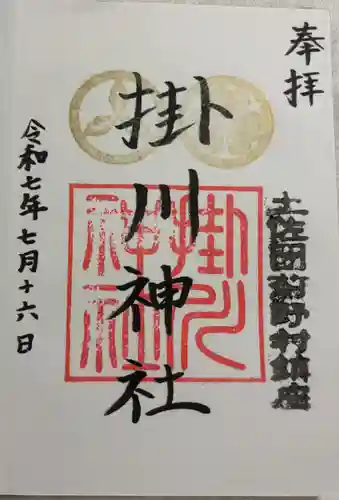 奉拝
土佐国剣野村鎮座
掛川神社
掛川神社
令和七年七月十六日